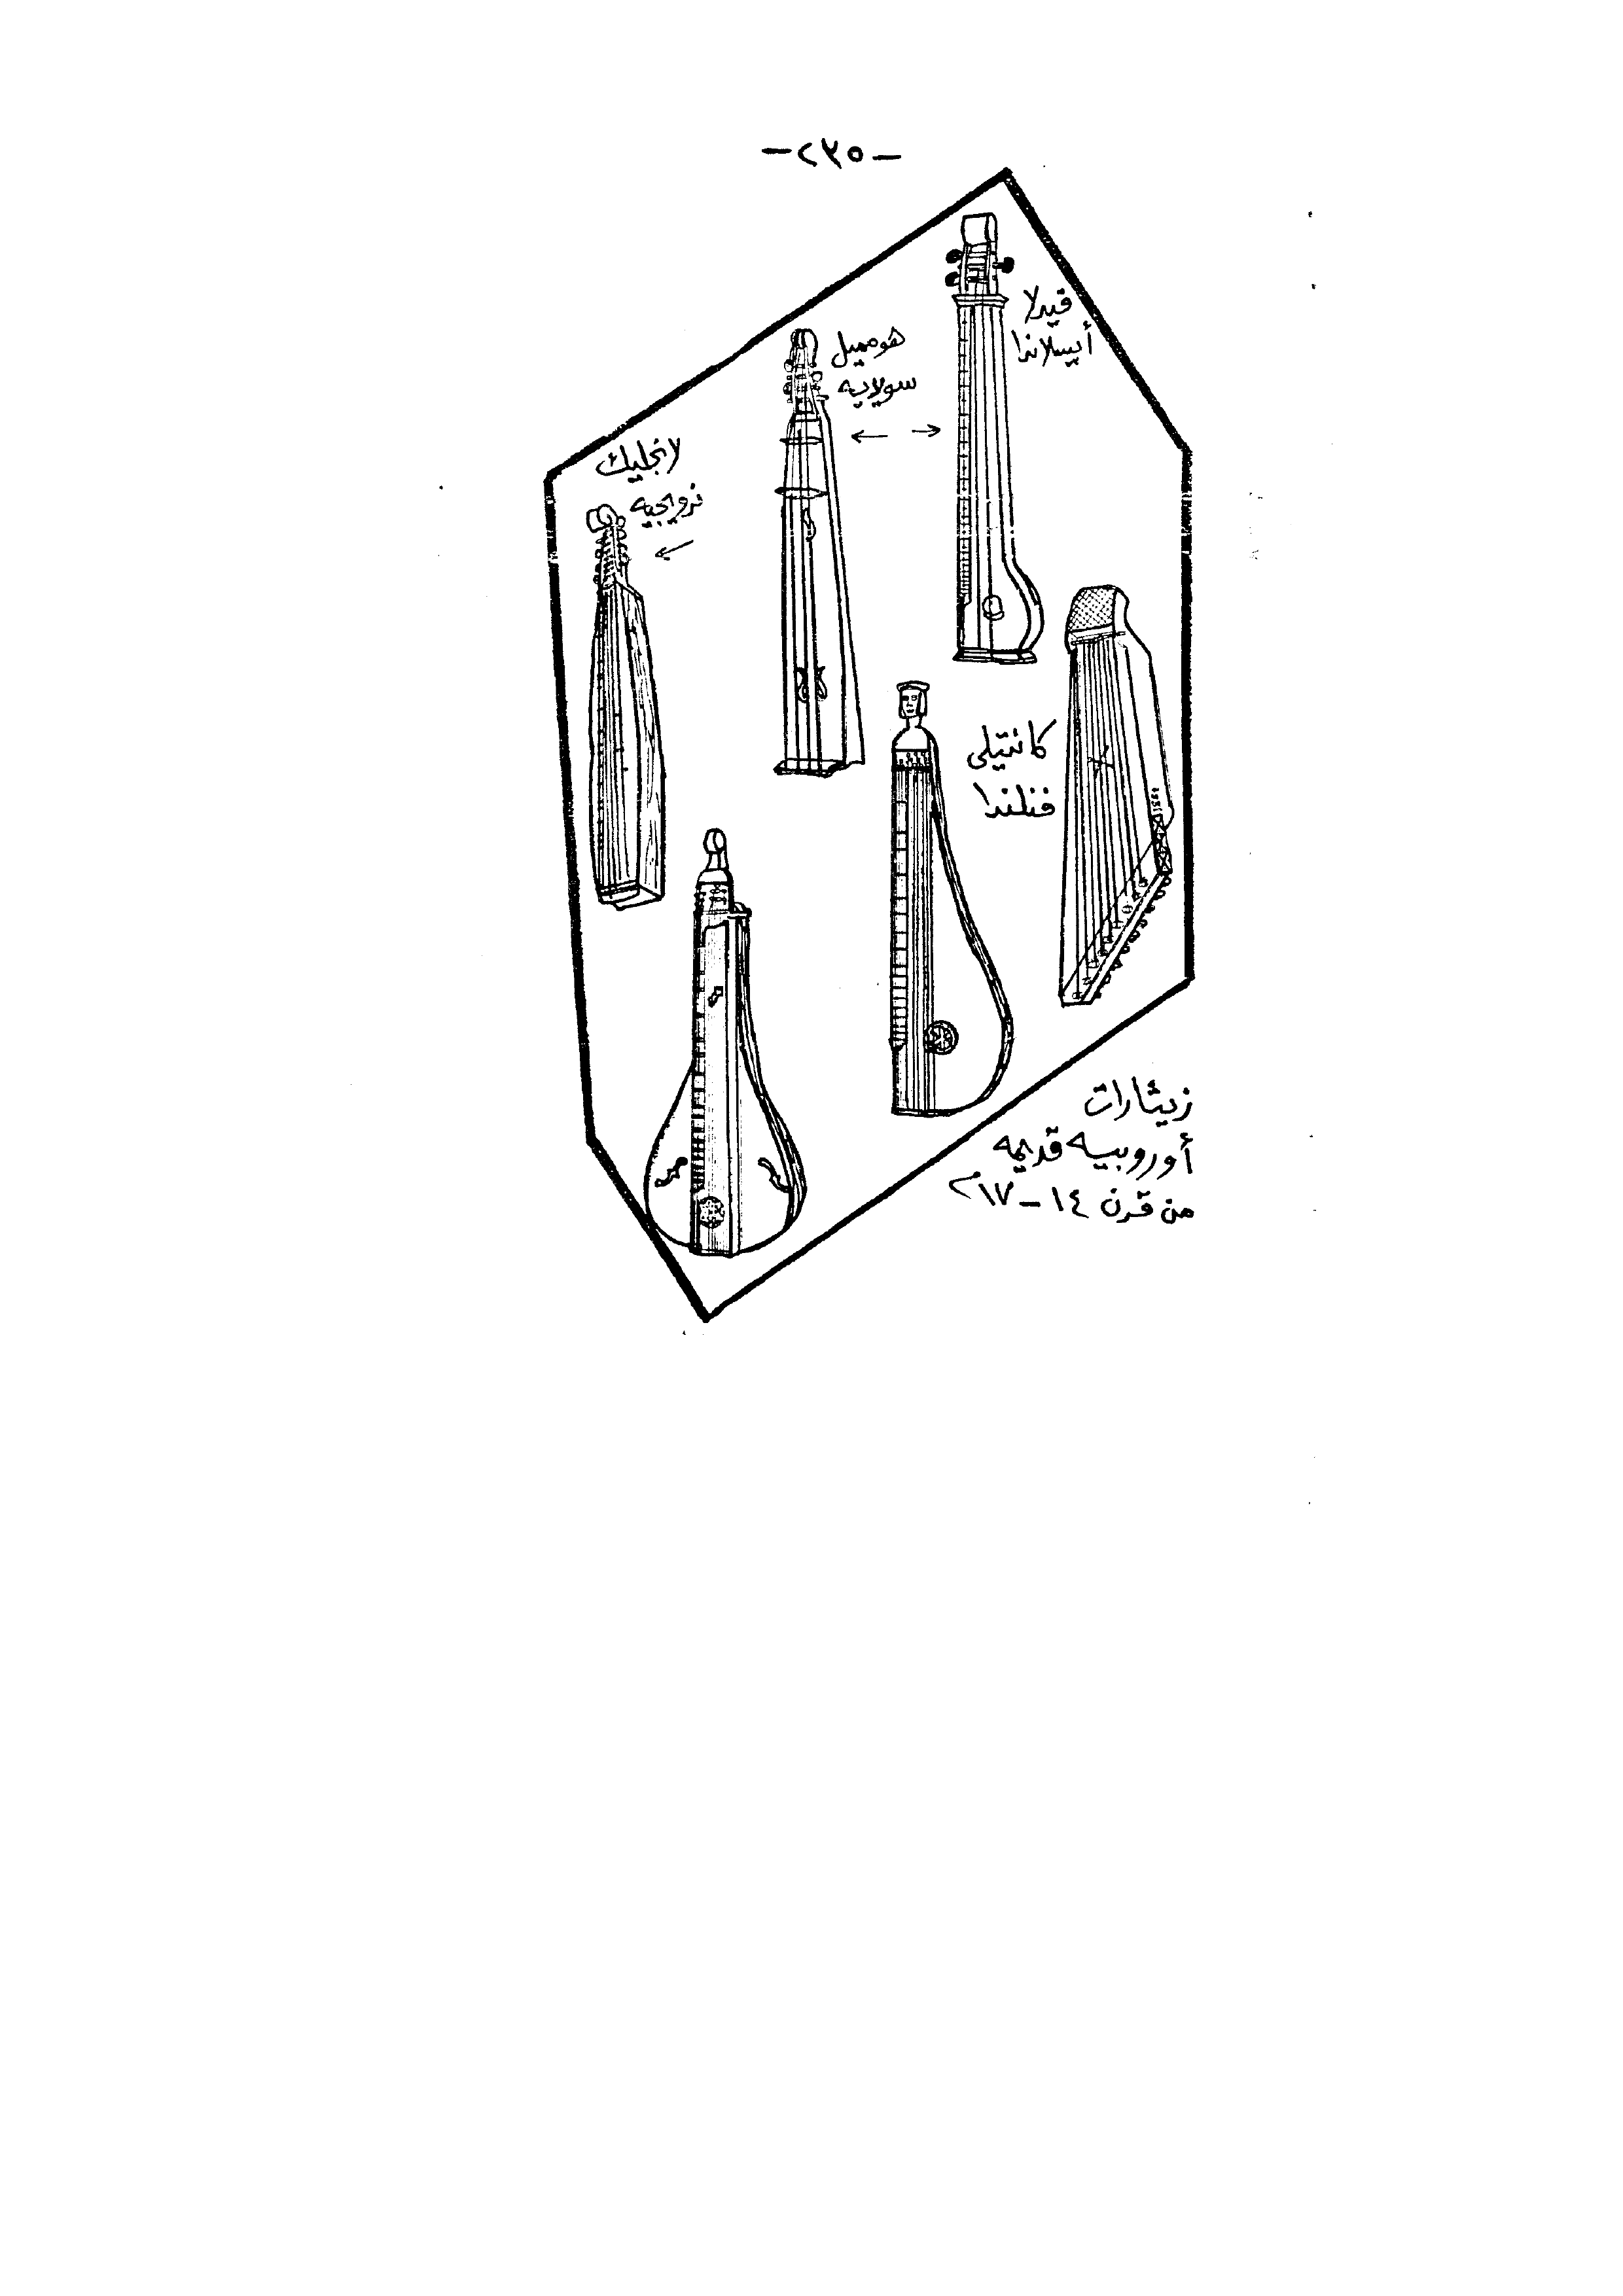 -٢٣٥-
فيدلا
أيسلاندا
هومميل
سويديه
لانجليك
نرويجيه
كانتيلى
فنلندا
زيثارات
أوروبيه قديمه
من قرن ١٤-١٧م